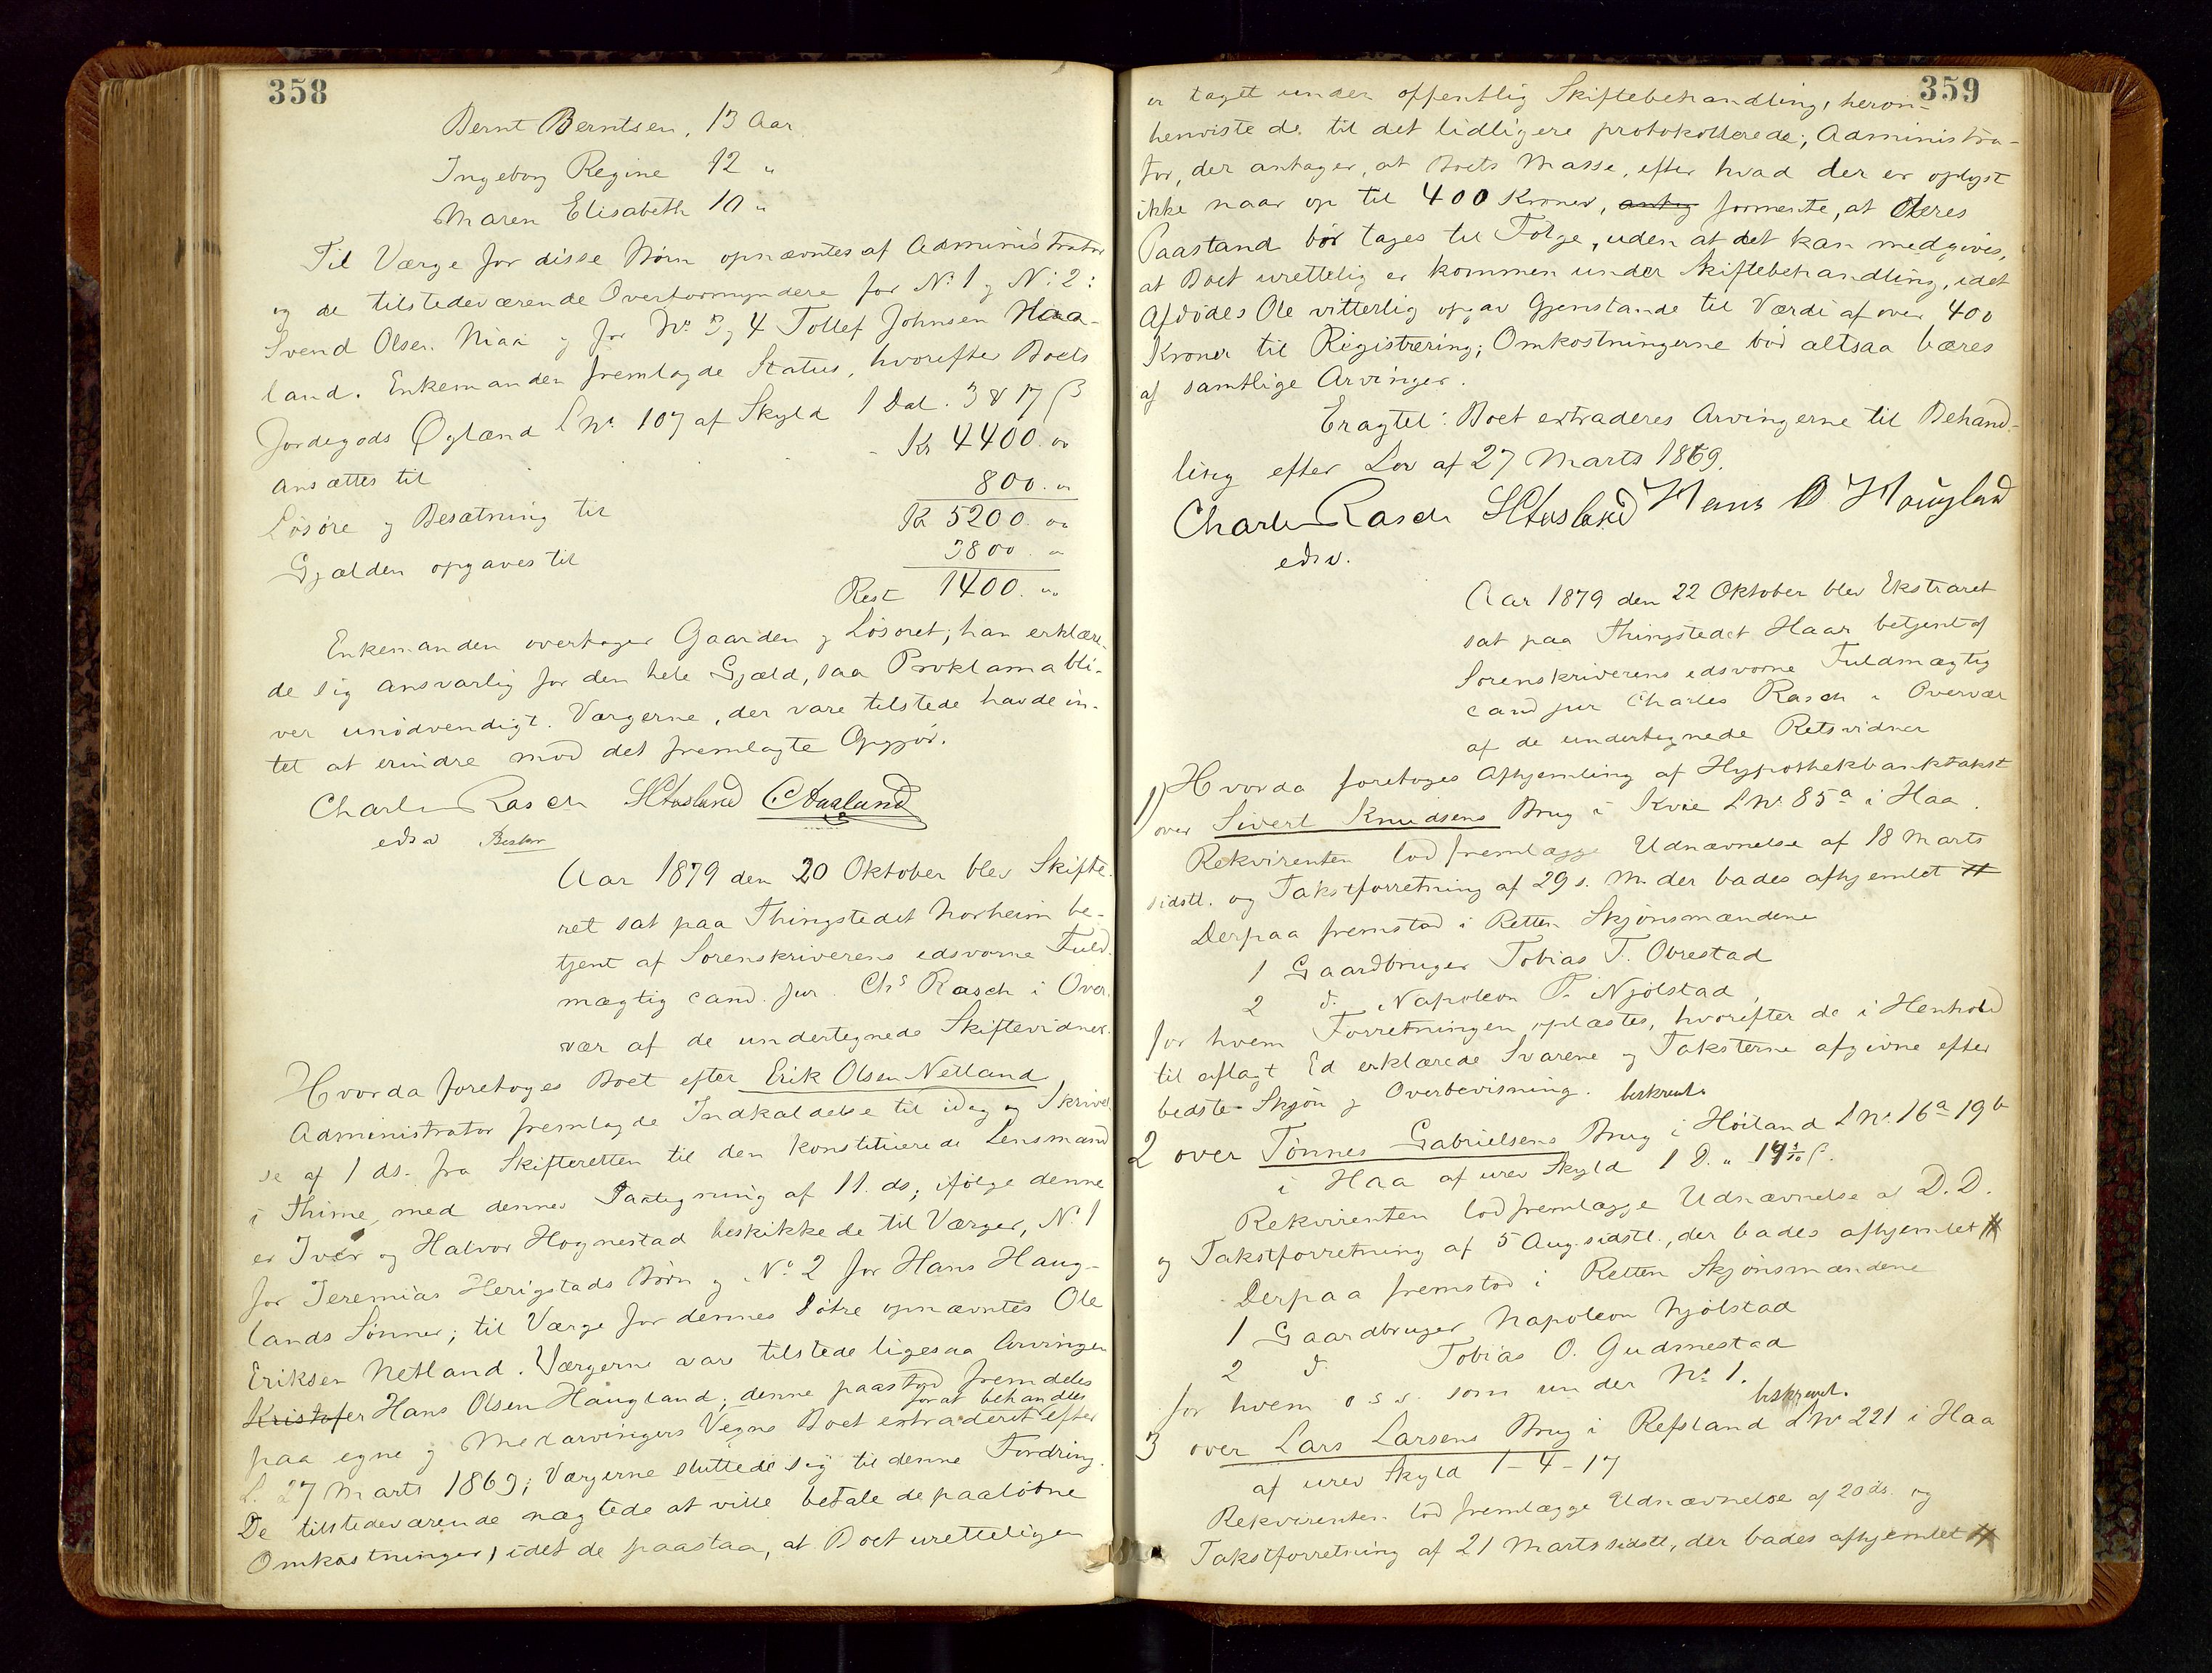 358
Bernt Berntsen, 13 Aar
Ingeborg Regine 12 "
Maren Elisabeth 10 "
Til Værge for disse Børn opnævntes af Administrator
og de tilstedeværende Overformyndere for No 1 og No 2:
Svend Olsen Niaa og for No 3 og 4 Tollef Johnsen Haa-
land. Enkemanden fremlagde Status, hvorefter Boets
Jordegods Øgland LNo 107 af Skyld 1 Dal. 3 & 17 ß
ansættes til Kr 4400. "
Løsøre og Besætning til 800. "
Kr 5200. "
Gjælden opgaves til 3800. "
Rest 1400. "
Enkemanden overtager Gaarden og Løsøret; han erklære-
de sig ansvarlig for den hele Gjæld, saa Proklama bli-
ver unødvendigt. Værgerne, der vare tilstede havde in-
tet at erindre mod det fremlagte Opgjør.
Charles Rasch
edsv
Aar 1879 den 20 Oktober blev Skifte-
ret sat paa Thingstedet Norheim be-
tjent af Sorenskriverens edsvorne Fuld-
mægtig cand. jur. Chs Rasch i Over-
vær af de undertegnede Skiftevidner.
Hvorda foretoges Boet efter Erik Olsen Netland
Administrator fremlagde Indkaldelse til idag og Skrivel-
se af 1 ds. fra Skifteretten til den konstituerede Lensmand
i Thime, med dennes Paategning af 11. ds; ifølge denne
er Iver og Halvor Hognestad beskikkede til Værger, No 1
for Jeremias Herigstads Børn og No 2 for Hans Haug-
lands Sønner; til Værge for dennes Døtre opnævntes Ole
Eriksen Netland. Værgerne vare tilstede ligesaa Arvingen
Kristofer Hans Olsen Haugland; denne paastod fremdeles
paa egne og Medarvingers Vegne Boet extraderet for at behandles efter
L. 27 Marts 1869; Værgerne sluttede sig til denne Fordring.
De tilstedeværende nægtede at ville betale de paaløbne
Omkostninger, idet de paastaa, at Boet uretteligen
359
er taget under offentlig Skiftebehandling, herom-
henviste de til det tidligere protokollerede; Administra-
tor, der antager, at Boets Masse, efter hvad der er oplyst
ikke naar op til 400 Kroner, antog formente, at deres
Paastand bør tages til Følge, uden at det kan medgives,
at Boet urettelig er kommen under Skiftebehandling, idet
Afdødes Ole vitterlig opgav Gjenstande til Værdi af over 400
Kroner til Registrering; Omkostningerne bør altsaa bæres
af samtlige Arvinger.
Eragtet: Boet extraderes Arvingerne til Behand-
ling efter Lov af 27 Marts 1869.
Charles Rasch Hans O Haugland
edsv.
Aar 1879 den 22 Oktober blev Ekstraret
sat paa Thingstedet Haar betjent af
Sorenskriverens edsvorne Fuldmægtig
cand jur Charles Rasch i Overvær
af de undertegnede Retsvidner
Hvorda foretoges Afhjemling af Hypothekbanktakst
1) over Sivert Knudsens Brug i Kvie LNo 85a i Haa.
Rekvirenten lod fremlægge Udnævnelse af 18 Marts
sidstl. og Takstforretning af 29 s. M. der bades afhjemlet #
Derpaa fremstod i Retten Skjønsmændene
1 Gaardbruger Tobias T. Obrestad
2 d. Napoleon T. Njølstad,
for hvem Forretningen oplæstes, hvorefter de i Henhold
til aflagt Ed erklærede Svarene og Taksterne afgivne efter
bedste Skjøn og Overbevisning. beskrevet.
2 over Tønnes Gabrielsens Brug i Høiland LNo 16a 19b
i Haa af urev Skyld 1 D. "
Rekvirenten lod fremlægge Udnævnelse af D. D.
og Takstforretning af 5 Aug. sidstl., der bades afhjemlet #
Derpaa fremstod i Retten Skjønsmændene
1 Gaardbruger Napoleon Njølstad
2 d. Tobias O. Gudmestad
for hvem o s v. som under No 1. beskrevet.
3 over Lars Larsens Brug i Refsland LNo 221 i Haa
af urev Skyld 1-4-17
Rekvirenten lod fremlægge Udnævnelse af 20 ds. og
Takstforretning af 21 Marts sidstl, der bades afhjemlet #